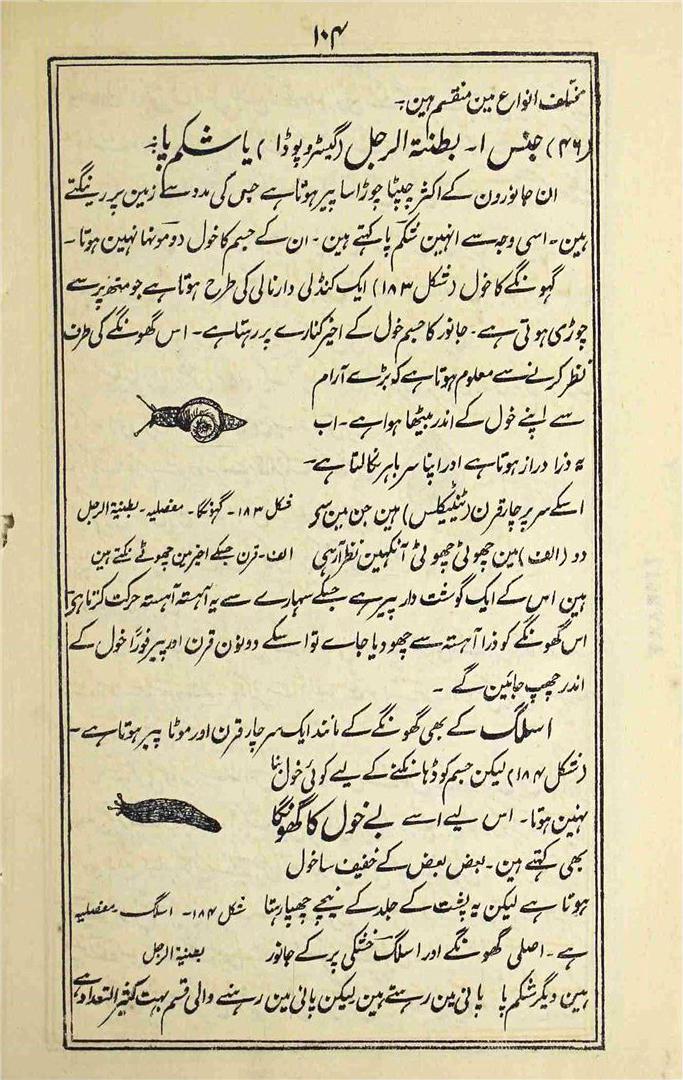 ۱۰۴
مختلف انواع مین منقسم ہین۔
(۴۶) جنس ۱۔ بطنیۃ الرجل (گیسٹروپوڈا) یا شکم پا۔
ان جانورون کے اکثر چپٹا چوڑا سا پیر ہوتا ہے جس کی مدد سے زمین پر رینگتے
ہین۔ اسی وجہ سے انہین شکم پا کہتے ہین۔ ان کے جسم کا خول دو مونہا نہین ہوتا۔
گہونگے کا خول (شکل ۱۸۳) ایک کنڈلی دار نالی کی طرح ہوتا ہے جو منھ پر سے
چوڑی ہوتی ہے۔ جانور کا جسم خول کے اخیر کنارے پر رہتا ہے۔ اس گھونگے کی طرف
نظر کرنے سے معلوم ہوتا ہے کہ بڑے آرام
سے اپنے خول کے اندر بیٹھا ہوا ہے۔ اب
یہ ذرا دراز ہوتا ہے اور اپنا سر باہر نکالتا ہے۔
اسکے سر پر چار قرن (ٹنٹیکلس) ہین جن مین سے
شکل ۱۸۳۔ گہونگا۔ مفصلیہ۔ بطنیۃ الرجل
دو (الف) مین چھوٹی چھوٹی آنکہین نظر آرہی
الف۔ قرن جسکے اخیر مین چھوٹے نکتے ہین
ہین اس کے ایک گوشت دار پیر ہے جسکے سہارے سے یہ آہستہ آہستہ حرکت کرتا ہی
اس گھونگے کو ذرا آہستہ سے چھو دیا جاے تو اسکے دونون قرن اور پیر فوراً خول کے
اندر چھپ جائین گے ۔
اسلگ کے بھی گھونگے کے مانند ایک سر چار قرن اور موٹا پیر ہوتا ہے۔
(شکل ۱۸۴) لیکن جسم کو ڈہانکنے کے لیے کوئی خول بنا
نہین ہوتا۔ اس لیے اسے بے خول کا گھونگا
بھی کہتے ہین۔ بعض بعض کے خفیف سا خول
ہوتا ہے لیکن یہ پشت کے جلد کے نیچے چھپا رہتا
شکل ۱۸۴۔ اسلگ۔ مفصلیہ
ہے۔ اصلی گھونگے اور اسلگ خشکی پر کے جانور
بطنیۃ الرجل
ہین دیگر شکم پا پانی مین رہتے ہین لیکن پانی مین رہنے والی قسم بہت کثیر التعداد ہے